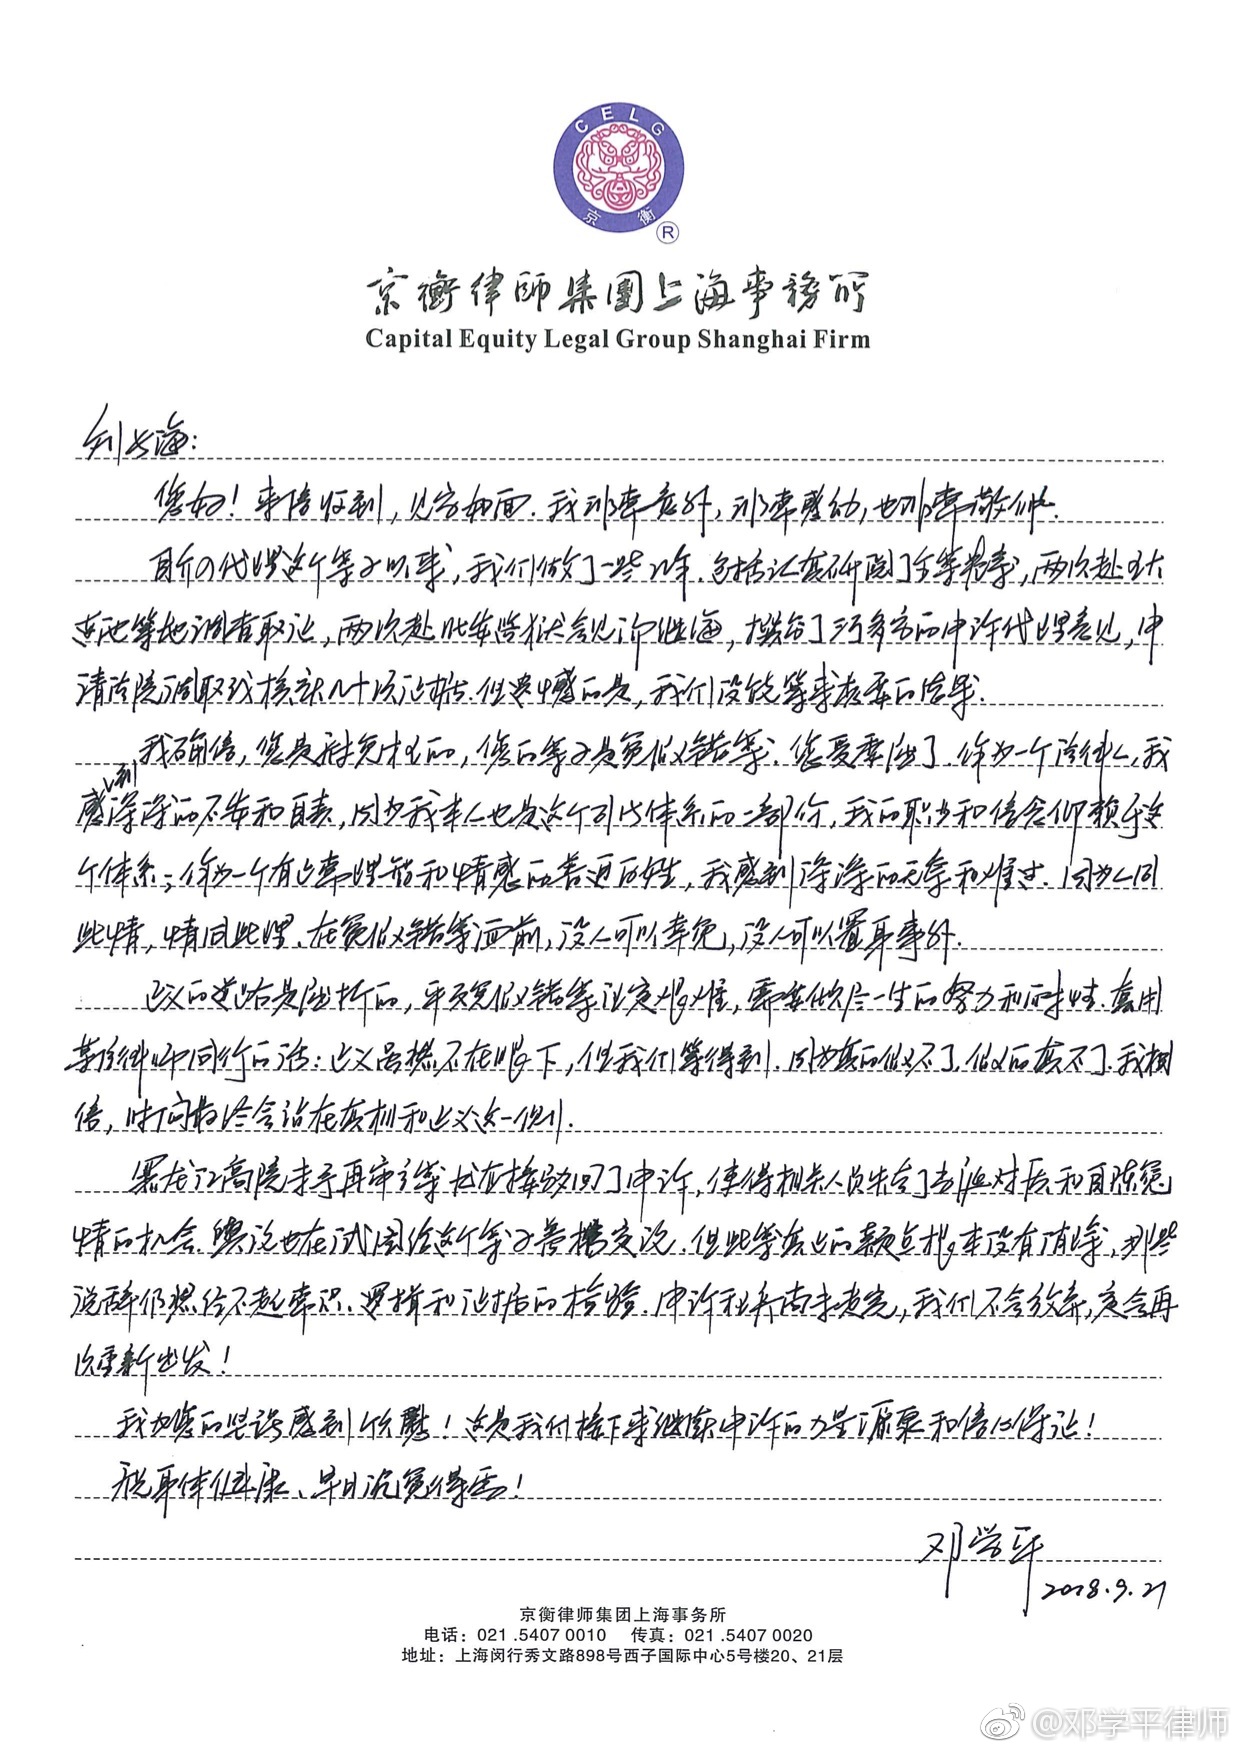 CELG
京衡
®
京衡律师集团上海事务所
Capital Equity Legal Group Shanghai Firm
刘长海：
您好！来信收到，见字如面。我非常意外，非常感动，也非常敬佩。
自介入代理这个案子以来，我们做了一些工作，包括认真研阅了全案卷宗，两次赴五大
连池等地调查取证，两次赴北安监狱会见 海，撰写了 多方的申诉代理意见，申
请法院调取或核实几十项证据。但遗憾的是，我们没能等来想要的结果。
我确信，您是被冤枉的，您的案子是冤假错案。您受委屈了。作为一个法律人，我
感到深深的不安和自责，因为我本人也是这个司法体系的一部份，我的职业和信念仰赖于这
个体系；作为一个有正常理智和情感的普通百姓，我感到深深的无奈和难过。因为人同
此情，情同此理。在冤假错案面前，没人可以幸免，没人可以置身事外。
正义的道路是曲折的，平反冤假错案注定很难，需要倾尽一生的努力和耐性。套用
某位律师同行的话：正义虽然不在眼下，但我们等得到。因为真的假不了，假的真不了。我相
信，时间最终会站在真相和正义这一侧。
黑龙江高院未予再审立案就直接驳回了申诉，使得相关人员失去了当庭对质和自陈冤
情的机会。舆论也在试图给这个案子善 定论。但此案高 的疑点根本没有消除，那些
说辞仍然经不起常识、逻辑和证据的检验。申诉程序尚未走完，我们不会放弃，定会再
次重新出发！
我为您的坚强感到欣慰！这是我们接下来继续申诉的力量源泉和信心保证！
祝身体健康、早日沉冤得雪！
邓学平
2018.9.21
京衡律师集团上海事务所
电话：021 .5407 0010 传真：021 .5407 0020
地址：上海闵行秀文路898号西子国际中心5号楼20、21层
@邓学平律师